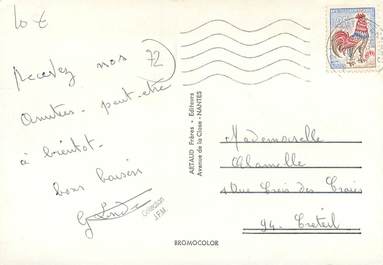 10 €
72
Recevez nos
Amitiés - peut-être
à bientôt -
bons baisers
Collection
J.P.M
ARTAUD Frères - Editeurs
Avenue de la Close - NANTES
Mademoiselle
4 Rue Croix des
94. Creteil
BROMOCOLOR